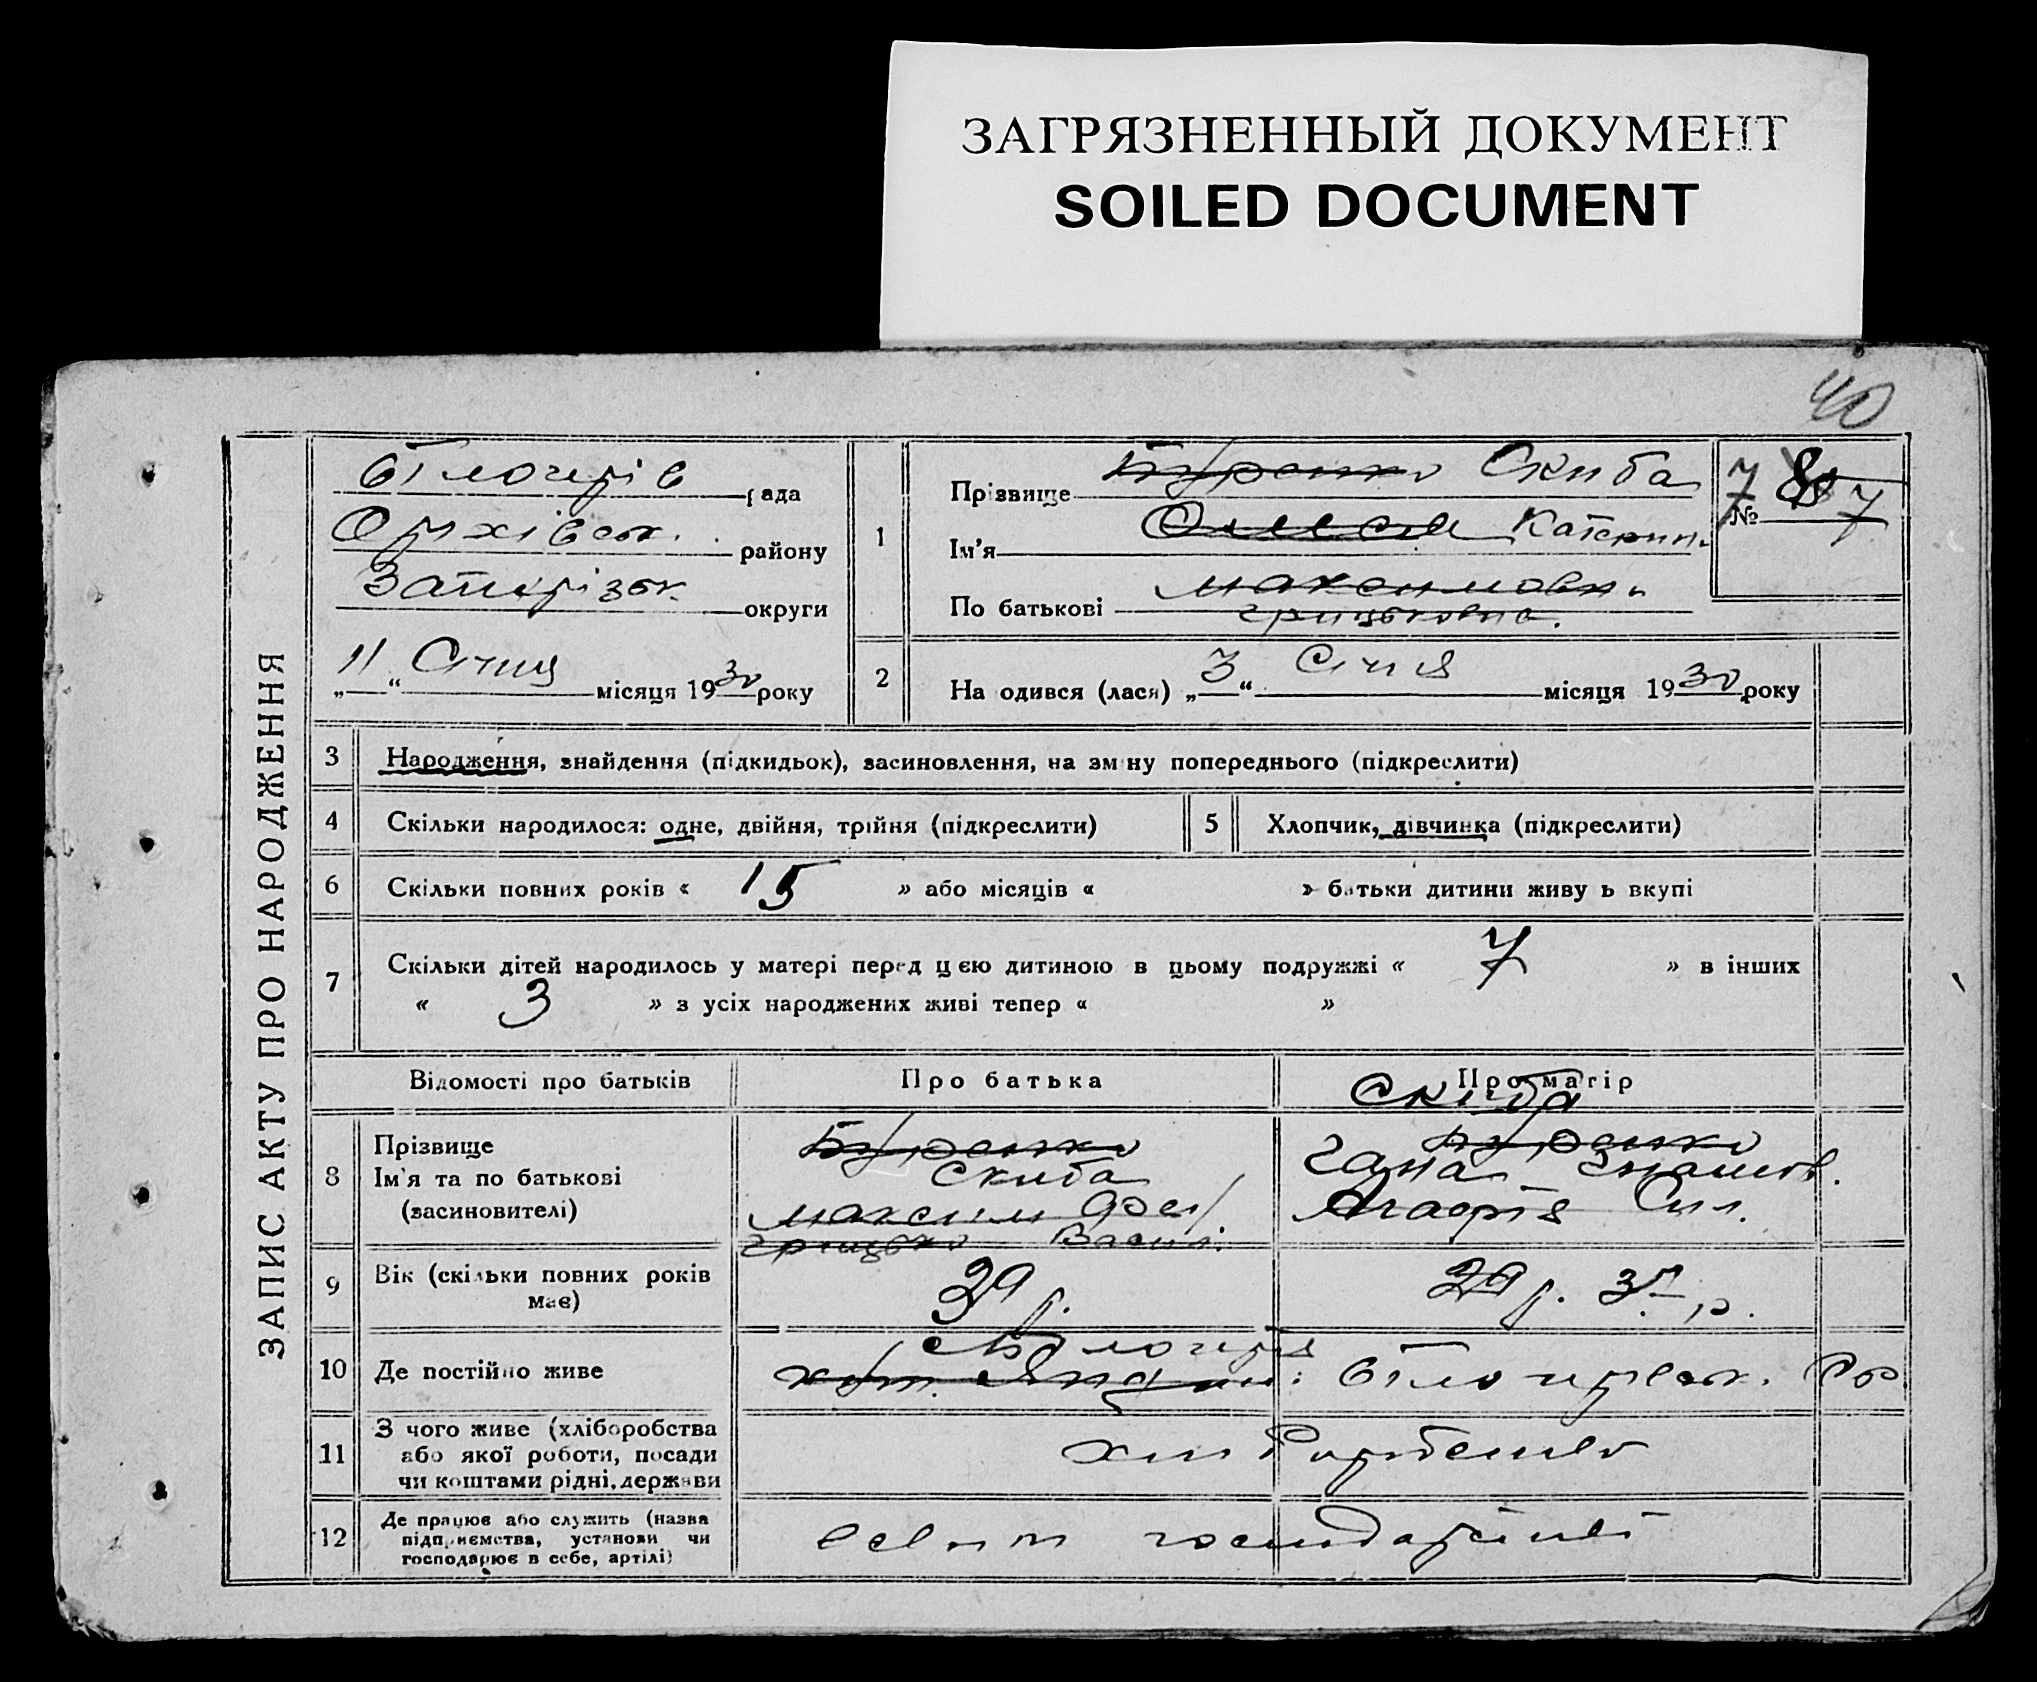 ЗАГРЯЗНЕННЫЙ ДОКУМЕНТ
SOILED DOCUMENT
40
ЗАПИС АКТУ ПРО НАРОДЖЕННЯ
рада
району
Запорізьк. округи
„11“ Січня місяця 1930 року
1
Прізвище Буренко Скиба
Ім'я Олеся Катерин.
По батькові Максимовн.
Грицьковна.
№ 7
2
На одився (лася) „3“ Січня місяця 1930 року
3 Народження, знайдення (підкидьок), засиновлення, на зміну попереднього (підкреслити)
4 Скільки народилося: одне, двійня, трійня (підкреслити)
5 Хлопчик, дівчинка (підкреслити)
6 Скільки повних років « 15 » або місяців « » батьки дитини живу ь вкупі
7 Скільки дітей народилось у матері перед цією дитиною в цьому подружжі « 7 » в інших
« 3 » з усіх народжених живі тепер « »
Відомості про батьків
Про батька
Про матір
8 Прізвище
Ім'я та по батькові
(засиновителі)
Буренко
Скиба
Максим
Грицько Васил.
Скиба
Буренко
Гана
Агафія
9 Вік (скільки повних років
має)
39 р.
29 р. 35 р.
10 Де постійно живе
11 З чого живе (хліборобства
або якої роботи, посади
чи коштами рідні, держави
12 Де працює або служить (назва
підприємства, установи чи
господарює в себе, артілі)